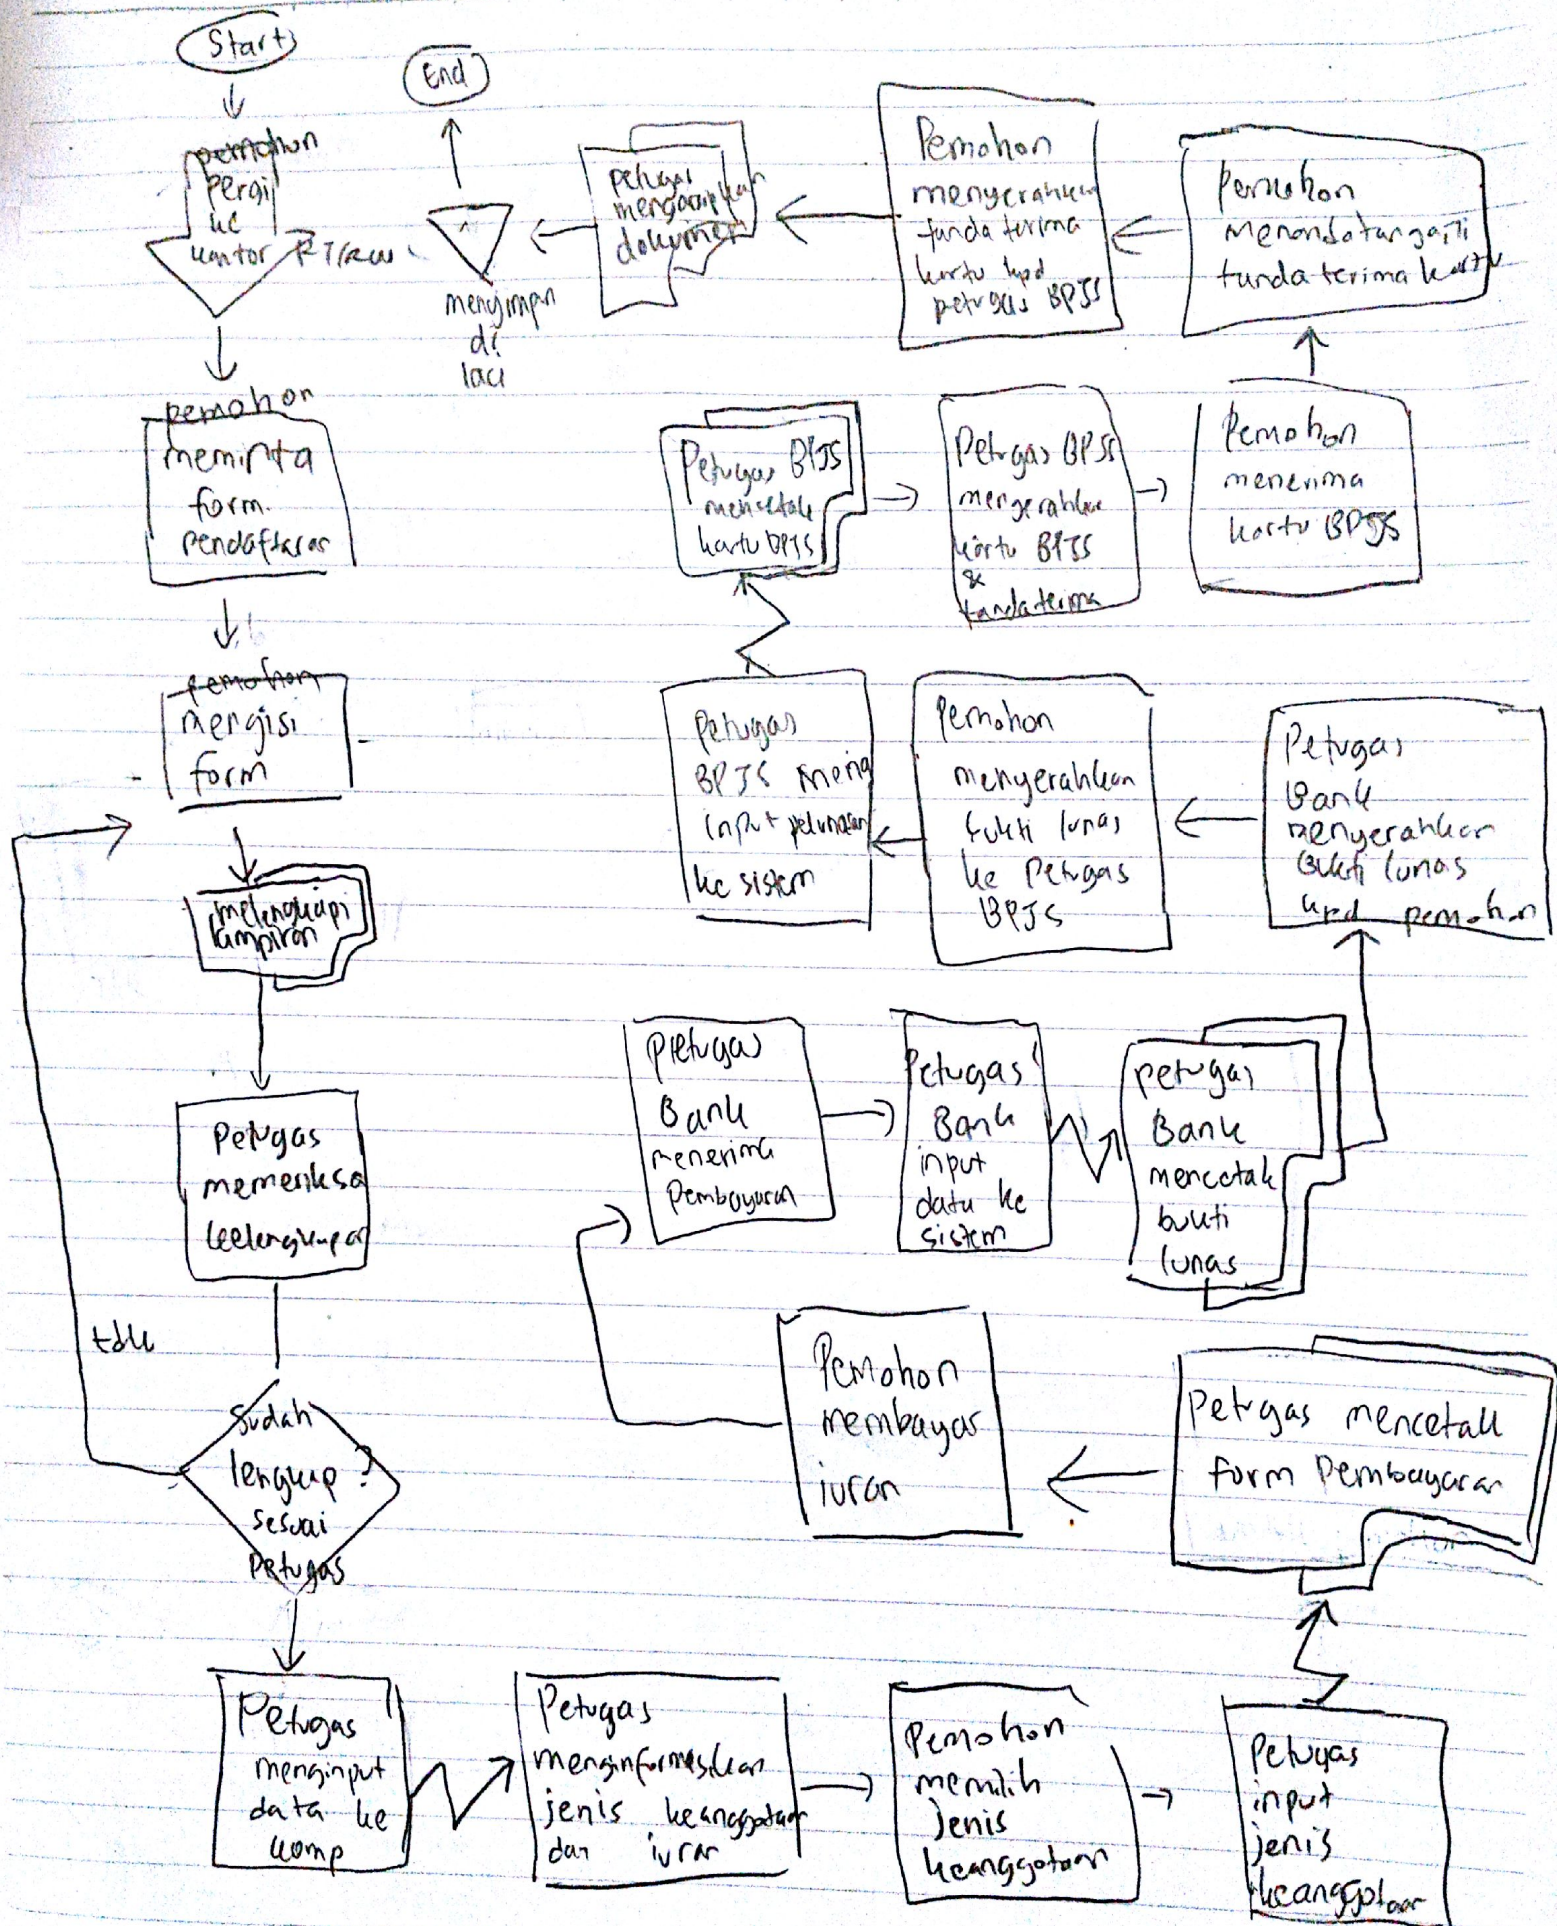 Start
pemohon
pergi
ke
kantor RT/RW
pemohon
meminta
form
pendaftaran
pemohon
mengisi
form
melengkapi
lampiran
Petugas
memeriksa
kelengkapan
tdk
Sudah
lengkap?
sesuai
Petugas
Petugas
menginput
data ke
komp
Petugas
menginformasikan
jenis keanggotaan
dan iuran
Pemohon
memilih
jenis
keanggotaan
Petugas
input
jenis
keanggotaan
Petugas mencetak
form Pembayaran
Pemohon
membayar
iuran
Petugas
Bank
menerima
Pembayaran
Petugas
Bank
input
data ke
sistem
petugas
Bank
mencetak
bukti
lunas
Petugas
Bank
menyerahkan
Bukti lunas
kpd pemohon
Pemohon
menyerahkan
bukti lunas
ke Petugas
BPJS
Petugas
BPJS meng
input pelunasan
ke sistem
Petugas BPJS
mencetak
kartu BPJS
Petugas BPJS
menyerahkan
kartu BPJS
&
tanda terima
Pemohon
menerima
kartu BPJS
Pemohon
menandatangani
tanda terima kartu
Pemohon
menyerahkan
tanda terima
kartu kpd
petugas BPJS
petugas
mengarsipkan
dokumen
menyimpan
di
laci
End